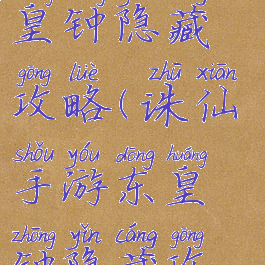 皇钟隐藏
gōng lüè zhū xiān
攻略(诛仙
shǒu yóu dōng huáng
手游东皇
zhōng yǐn cáng gōng
钟隐藏攻